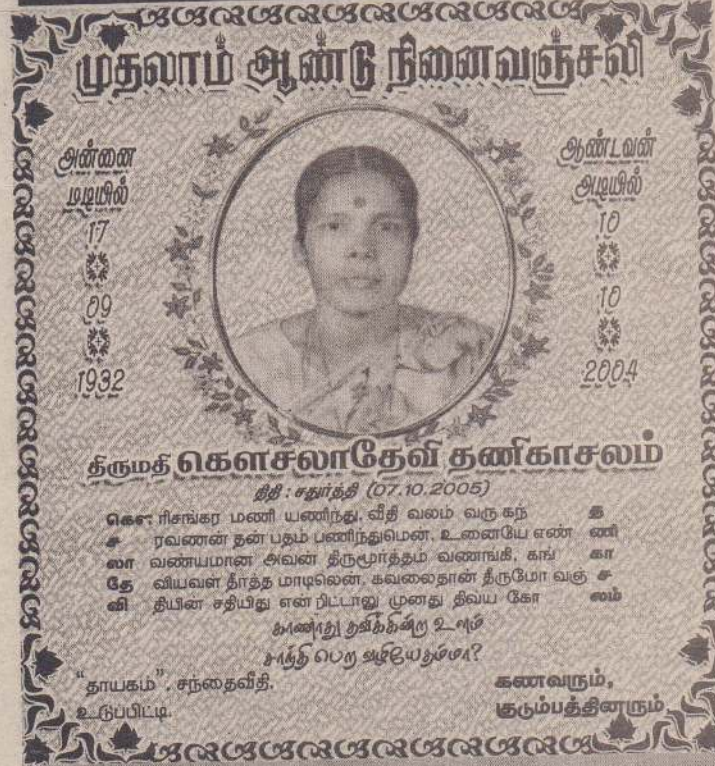 முதலாம் ஆண்டு நினைவஞ்சலி
அன்னை
மடியில்
17
09
1932
ஆண்டவன்
அடியில்
10
10
2004
திருமதி கௌசலாதேவி தணிகாசலம்
திதி : சதுர்த்தி (07.10.2005)
கௌ: ரிசங்கர மணி யணிந்து, வீதி வலம் வரு கந் த
ச ரவணன் தன் பதம் பணிந்துமென், உனையே எண் ணி
லா வண்யமான அவன் திருமூர்த்தம் வணங்கி, கங் கா
தே வியவள் தீர்த்த மாடிலென், கவலைதான் தீருமோ வஞ் ச
வி தியின் சதியிது என்றிட்டாலு முனது திவய கோ லம்
காணாது தவிக்கின்ற உளம்
சாந்தி பெற வழியேதம்மா?
"தாயகம்", சந்தைவீதி,
உடுப்பிட்டி.
கணவரும்,
குடும்பத்தினரும்